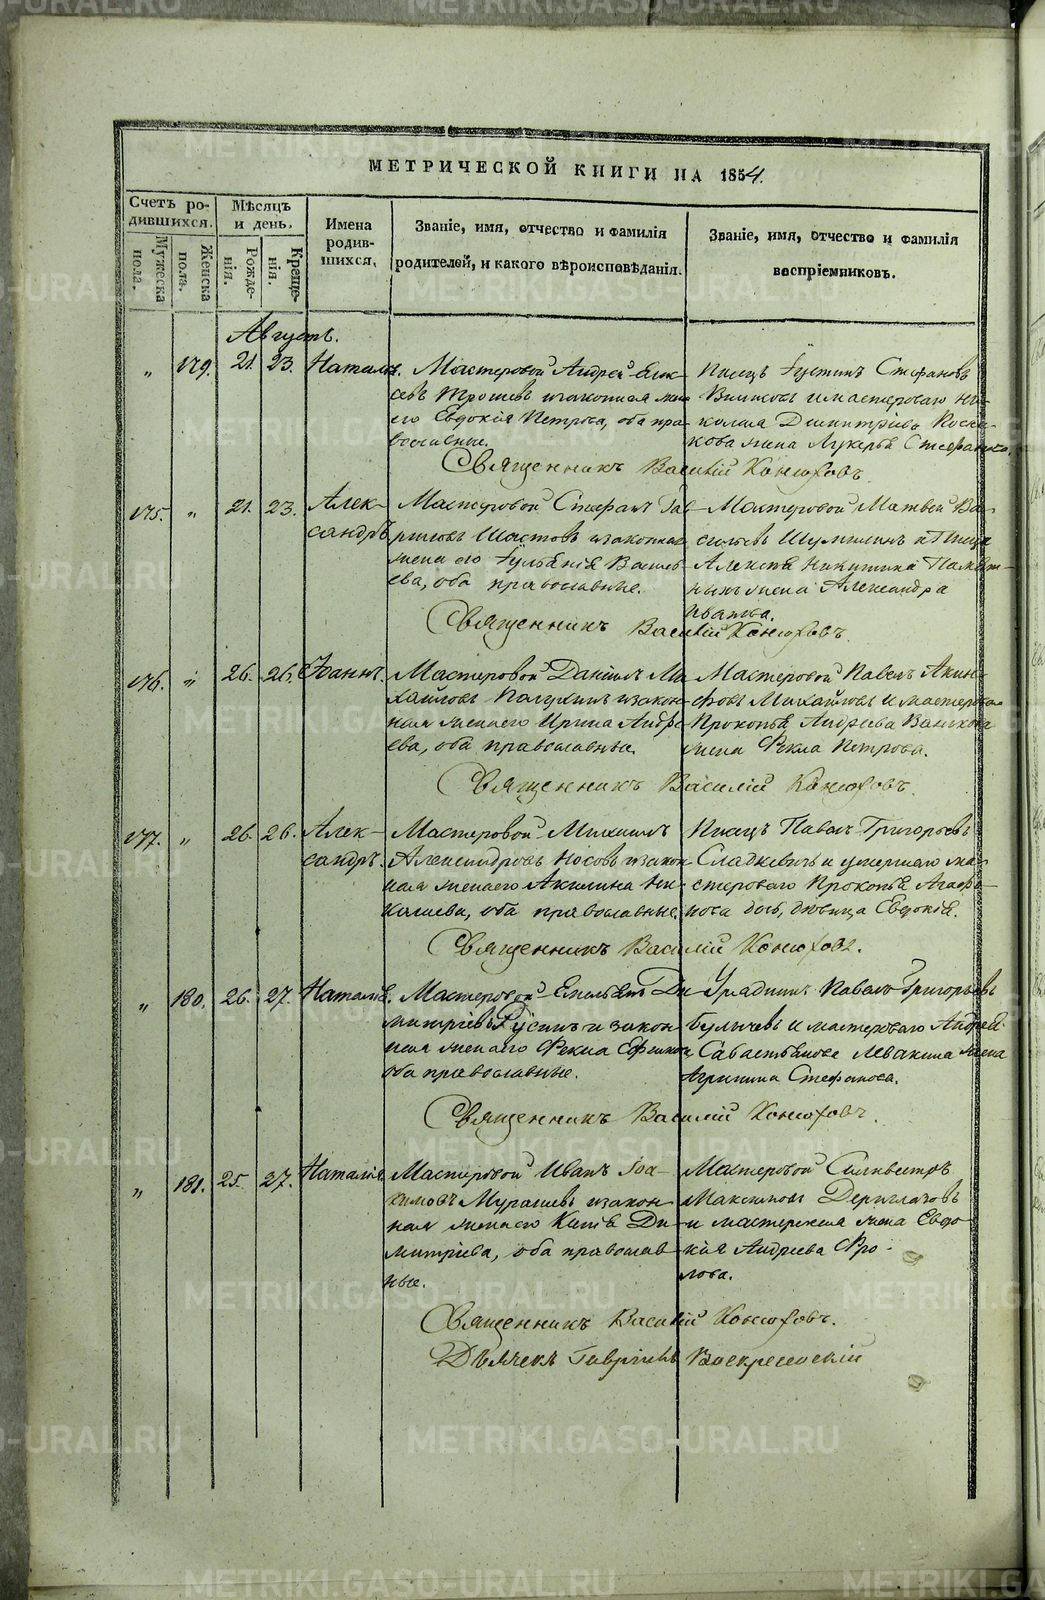 МЕТРИЧЕСКОЙ КНИГИ НА 1854.
Счетъ ро-
дившихся.
Мужеска
пола.
Женска
пола.
Мѣсяцъ
и день.
Рожде-
нія.
Креще-
нія.
Имена
родив-
шихся.
Званіе, имя, отчество и фамилія
родителей, и какого вѣроисповѣданія.
Званіе, имя, отчество и фамилія
воспріемниковъ.
Августъ.
" 179. 21. 23. Наталія.
Мастеровой Андрей
законная жена
его Евдокія Петрова, оба пра-
вославные.
Писецъ Іустинъ Стефановъ
и мастероваго Ни-
колая Димитріева
жена Лукерья Стефанова.
Священникъ Василій Конюховъ.
175. " 21. 23. Алек-
сандръ
Мастеровой Стефанъ
Шастовъ и законная
жена его Іуліанія Василь-
ева, оба православные.
Мастеровой Матвей Ва-
сильевъ Шумилинъ и
Алексѣя Никитина
жена Александра
Иванова.
Священникъ Василій Конюховъ.
176. " 26. 26. Іоаннъ.
Мастеровой Даніилъ Ми-
хайловъ и закон-
ная жена его Ирина Андре-
ева, оба православные.
Мастеровой Павелъ Акин-
фовъ Михайловъ и мастероваго
Прокопья Андреева
жена Фекла Петрова.
Священникъ Василій Конюховъ.
177. " 26. 26. Алек-
сандръ.
Мастеровой Михаилъ
Александровъ Носовъ и закон-
ная жена его Акилина Ни-
колаева, оба православные.
Писецъ Павелъ Григорьевъ
Сладкевичъ и умершаго ма-
стероваго Прокопья Агафо-
нова дочь, дѣвица Евдокія.
Священникъ Василій Конюховъ.
" 180. 26. 27. Наталія.
Мастеровой Емельянъ Ди-
митріевъ Русинъ и закон
ная жена его Фекла Ефимова
оба православные.
Урядникъ Павелъ Григорьевъ
Булычевъ и мастероваго Андрея
Савастьянова Левакина жена
Агрипина Стефанова.
Священникъ Василій Конюховъ.
" 181. 25. 27. Наталія.
Мастеровой Иванъ Іоа-
кимовъ Мурашевъ и закон-
ная жена его Ди-
митріева, оба православ-
ные.
Мастеровой Силивестръ
Максимовъ Дериглазовъ
и мастерская жена Евдо-
кія Андреева Фро-
лова.
Священникъ Василій Конюховъ.
Дьячекъ Гавріилъ Воскресенскій
METRIKI.GASO-URAL.RU